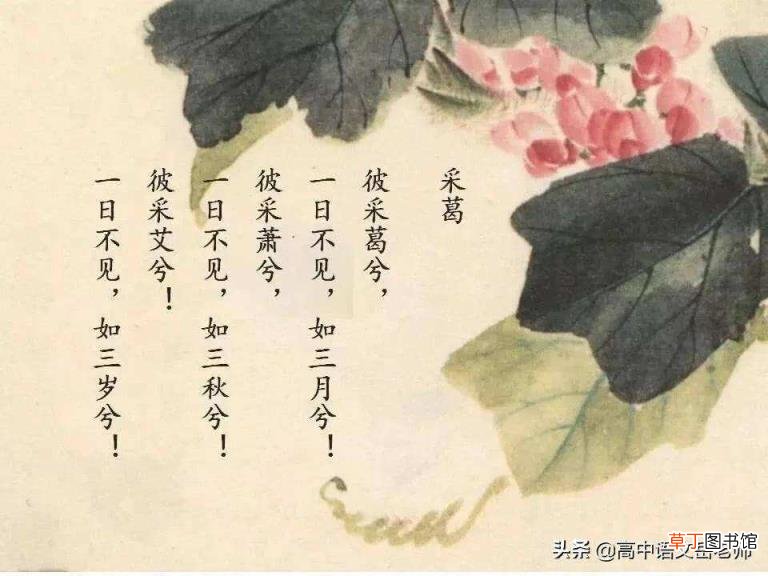 采葛
彼采葛兮，
一日不见，如三月兮！
彼采萧兮，
一日不见，如三秋兮！
彼采艾兮！
一日不见，如三岁兮！
头条 @高中语文岳老师
草丁图书馆